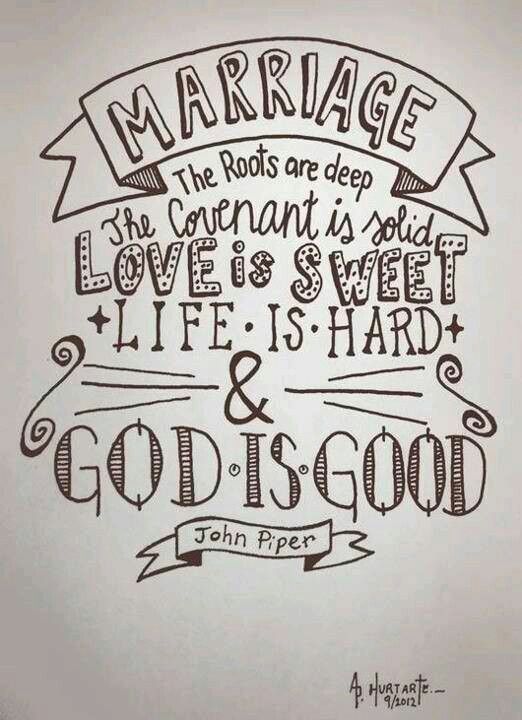 MARRIAGE
The Roots are deep
The Covenant is solid
LOVE is SWEET
LIFE · IS · HARD
&
GOD · IS · GOOD
John Piper
A. HURTARTE.-
9/2012